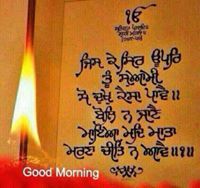 ੴ
ਜਿਸ ਕੇ ਸਿਰ ਊਪਰਿ
ਤੂੰ ਸੁਆਮੀ
ਸੋ ਦੁਖੁ ਕੈਸਾ ਪਾਵੈ॥
ਬੋਲਿ ਨ ਜਾਣੈ
ਮਾਇਆ ਮਦਿ ਮਾਤਾ
ਮਰਣਾ ਚੀਤਿ ਨ ਆਵੈ॥੧॥
Good Morning